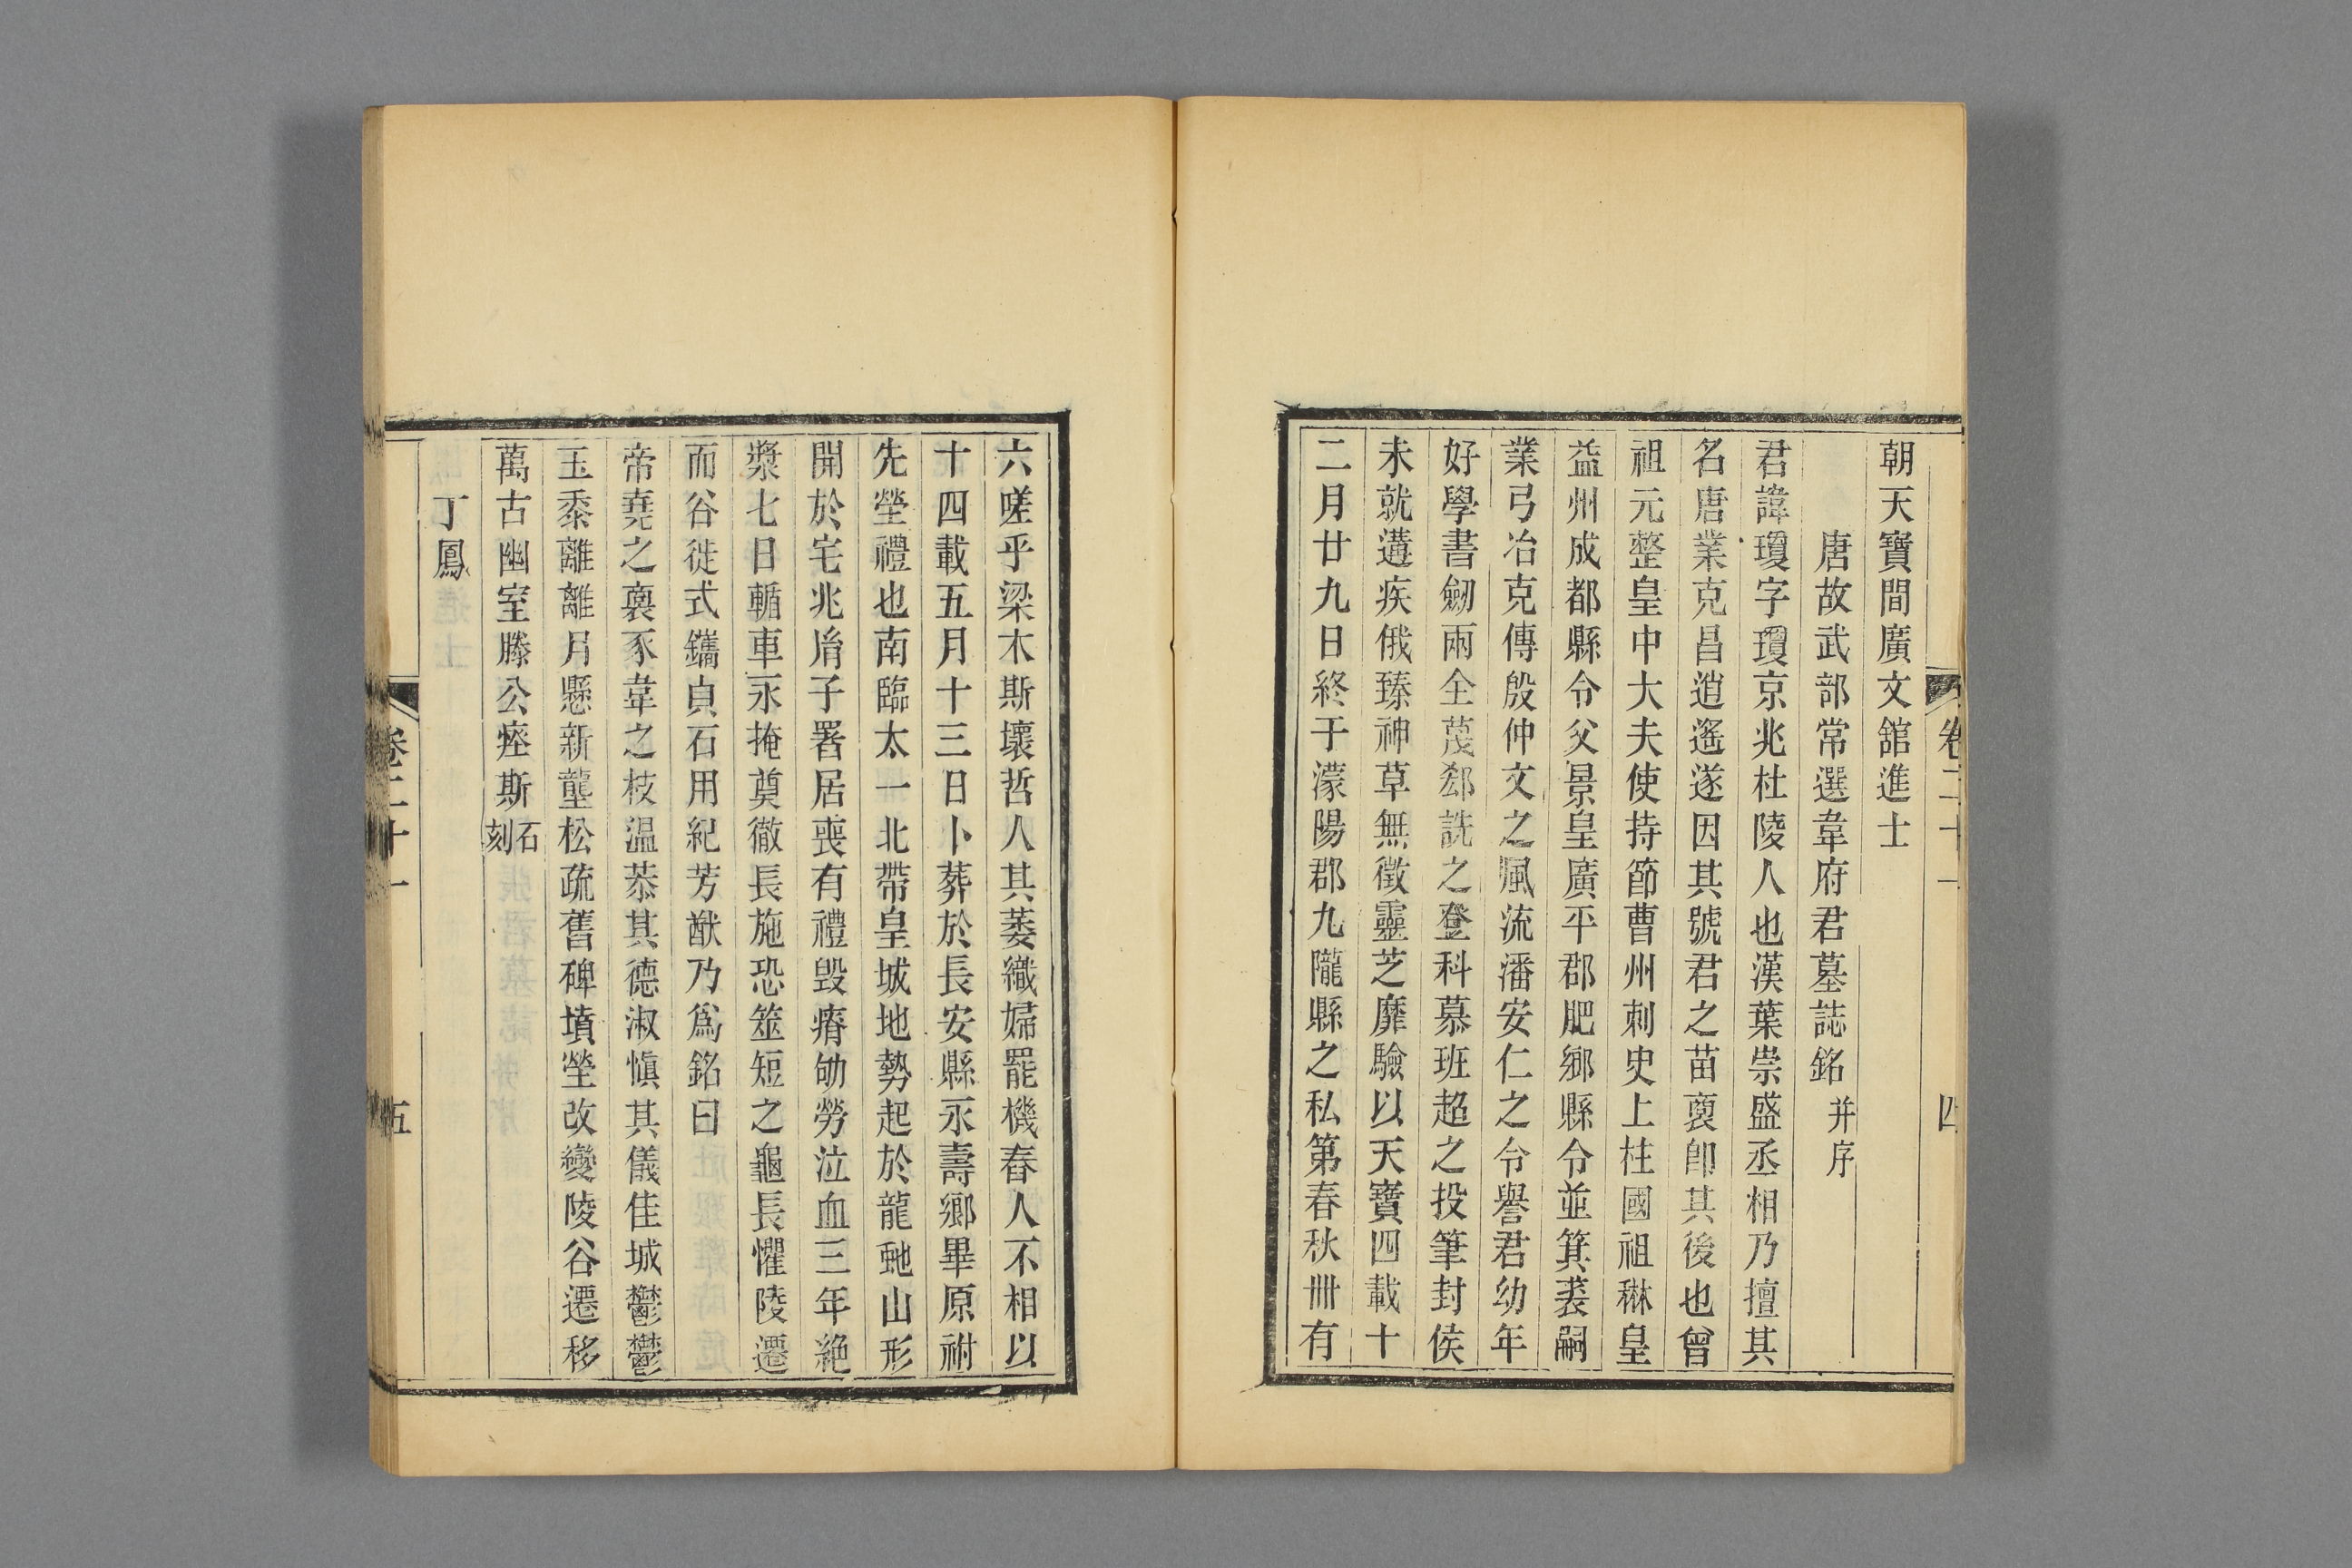 朝天寶間廣文舘進士
唐故武部常選韋府君墓誌銘并序
君諱瓊字瓊京兆杜陵人也漢葉崇盛丞相乃擅其
名唐業克昌逍遙遂因其號君之苗裔卽其後也曾
祖元整皇中大夫使持節曹州刺史上柱國祖綝皇
益州成都縣令父景皇廣平郡肥鄉縣令並箕裘嗣
業弓冶克傳殷仲文之風流潘安仁之令譽君幼年
好學書劒兩全蔑郄詵之登科慕班超之投筆封侯
未就遘疾俄臻神草無徵靈芝靡驗以天寶四載十
二月廿九日終于濛陽郡九隴縣之私第春秋卌有
卷二十一
四
六嗟乎梁木斯壞哲人其萎織婦罷機舂人不相以
十四載五月十三日卜葬於長安縣永壽鄉畢原祔
先塋禮也南臨太一北帶皇城地勢起於龍虵山形
開於宅兆胤子署居喪有禮毀瘠劬勞泣血三年絕
漿七日輴車永掩奠徹長施恐筮短之龜長懼陵遷
而谷徙式鐫貞石用紀芳猷乃爲銘曰
帝堯之裔豕韋之枝温恭其德淑愼其儀佳城鬱鬱
玉黍離離月懸新壟松疏舊碑墳塋改變陵谷遷移
萬古幽室滕公瘞斯石刻
丁鳳
卷二十一
五